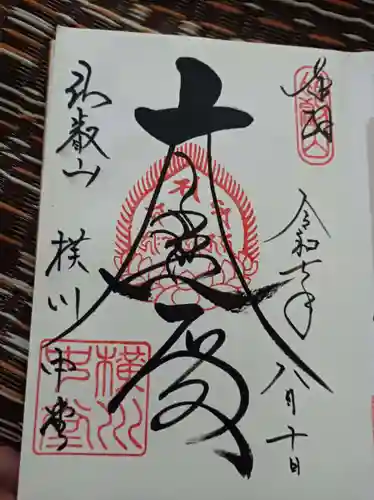 奉拝
令和七年
八月十日
大悲殿
比叡山
横川中堂
横川
中堂